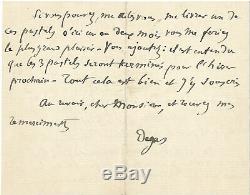 Si vous pouvez, me dites vous, me livrer un de
ces pastels d'ici un ou deux mois vous me feriez
le plus grand plaisir - Vous ajoutez: il est entendu
que les 3 pastels seront terminés pour l'hiver
prochain - Tout cela est bien et j'y souscris
Au revoir, cher Monsieur, et recevez mes
remerciements
Degas